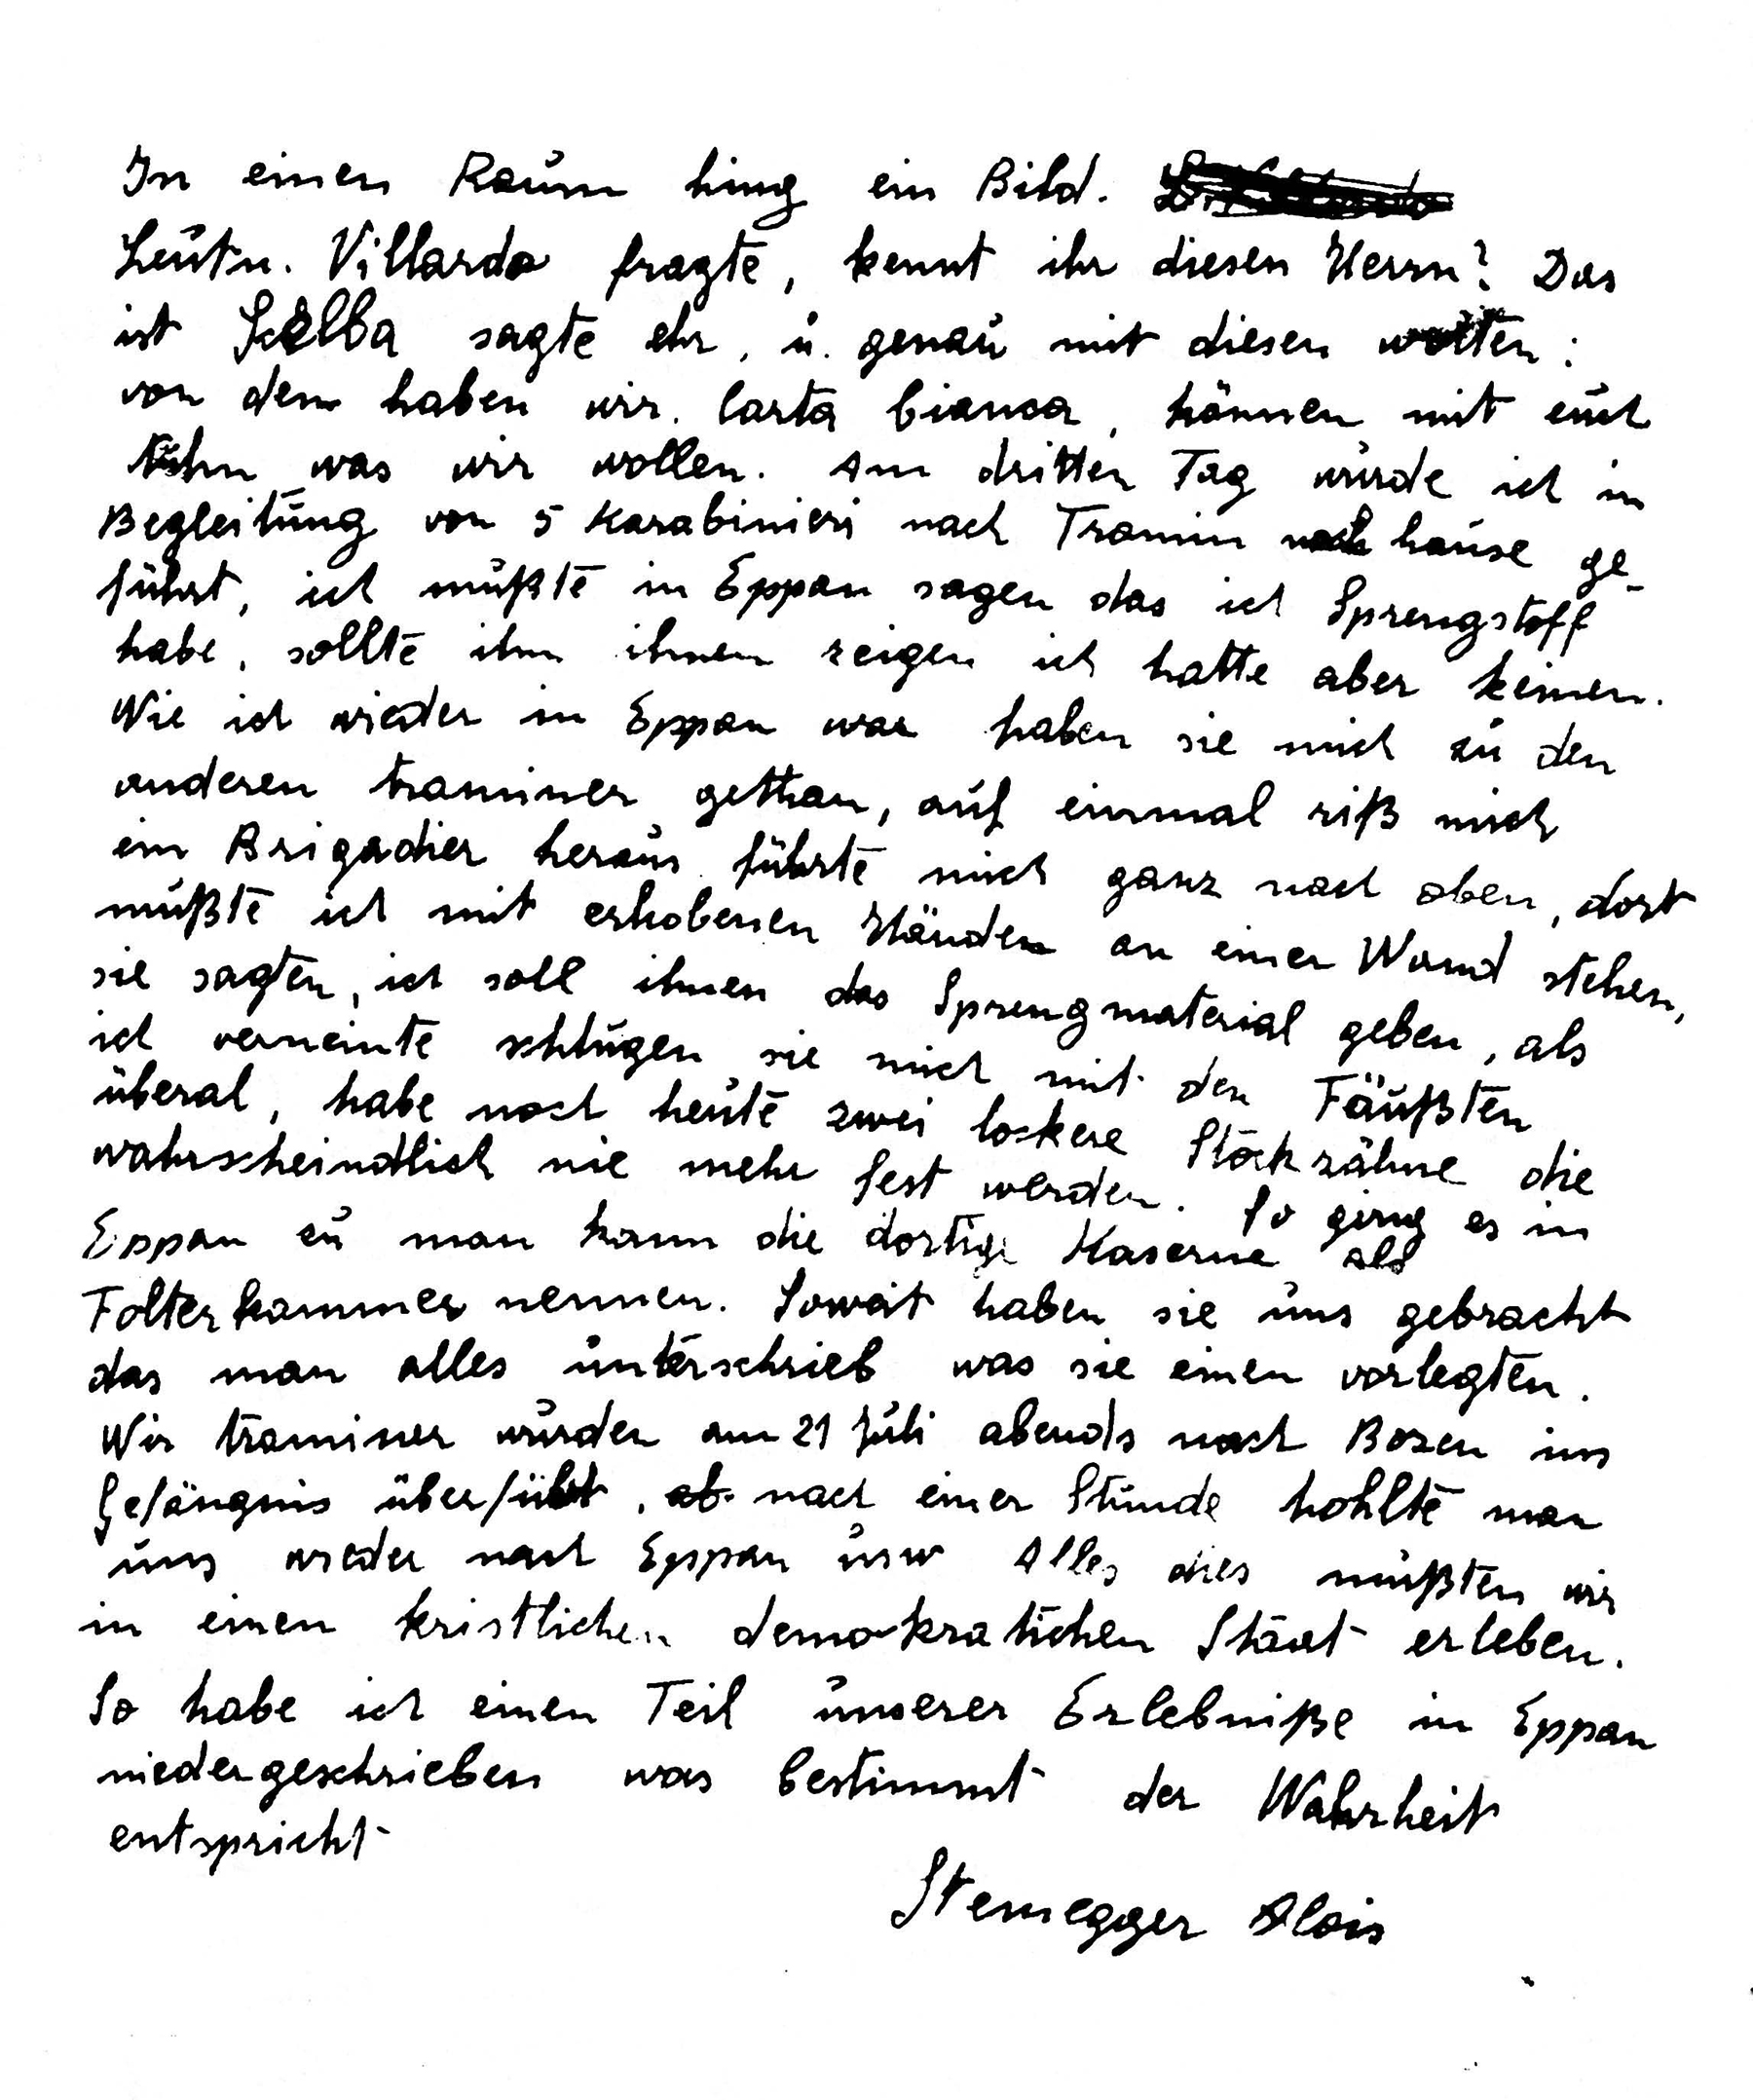 In einen Raum hing ein Bild.
Leutn. Villardo fragte, kennt ihr diesen Herrn? Das
ist Scelba sagte ehr, u. genau mit diesen worten:
von dem haben wir. Carta bianca, können mit euch
tuhn was wir wollen. Am dritten Tag wurde ich in
Begleitung von 5 Karabinieri nach Tramin nach hause ge-
führt, ich mußte in Eppan sagen das ich Sprengstoff
habe, sollte ihn ihnen zeigen ich hatte aber keinen.
Wie ich wieder in Eppan war haben sie mich zu den
anderen traminer gethan, auf einmal riß mich
ein Brigadier heraus führte mich ganz nach oben, dort
mußte ich mit erhobenen Händen an einer Wand stehen,
sie sagten, ich soll ihnen das Sprengmaterial geben, als
ich verneinte schlugen sie mich mit den Fäußten
überal, habe noch heute zwei lockere Stockzähne die
wahrscheindlich nie mehr fest werden. So ging es in
Eppan zu man kann die dortige Kaserne als
Folterkammer nennen. Soweit haben sie uns gebracht
das man alles unterschrieb was sie einen vorlegten.
Wir traminer wurden am 21 Juli abends nach Bozen ins
Gefängnis überführt, ab. nach einer Stunde hohlte man
uns wieder nach Eppan usw Alles dies mußten wir
in einen kristlichen demokratichen Staat erleben.
So habe ich einen Teil unserer Erlebniße in Eppan
niedergeschrieben was bestimmt der Wahrheit
entspricht
Steinegger Alois